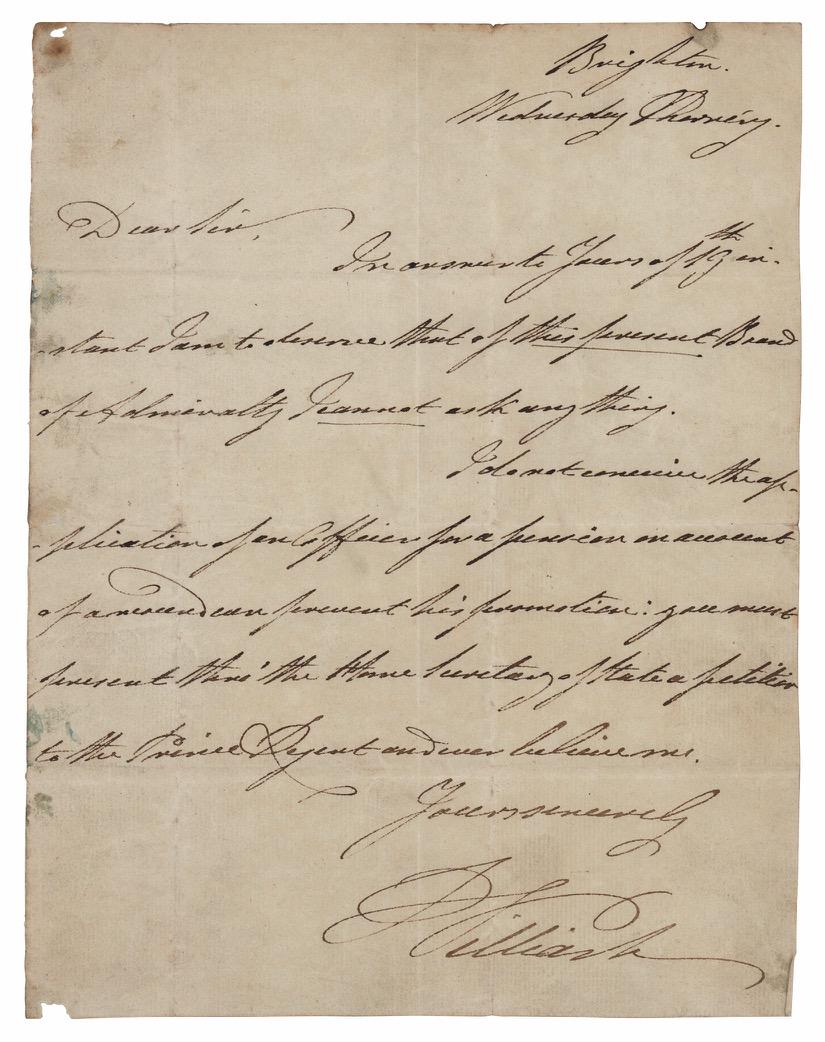 Brighton.
Wednesday Evening.
Dear Sir,
In answer to Yours of 19th in-
-stant I am to observe that of this present Board
of Admiralty I cannot ask any thing.
I do not conceive the ap-
-plication of an Officer for a pension on account
of a wound can prevent his promotion: you must
present thro' the Home Secretary of State a petition
to the Prince Regent and ever believe me.
Yours sincerely
William